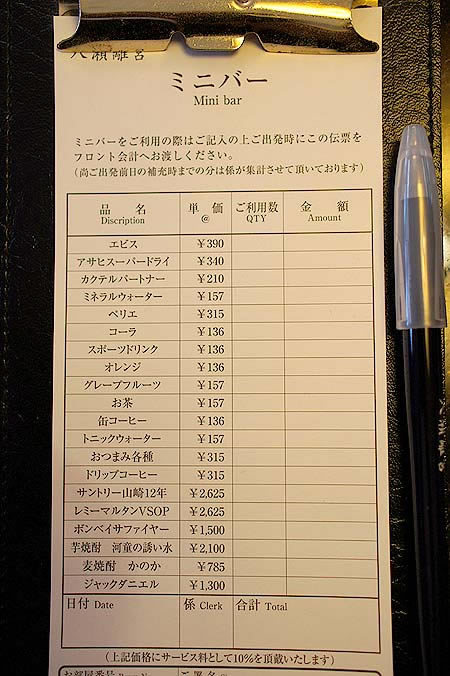 八瀬離宮
ミニバー
Mini bar
ミニバーをご利用の際はご記入の上ご出発時にこの伝票を
フロント会計へお渡しください。
(尚ご出発前日の補充時までの分は係が集計させて頂いております)
品名 単価 ご利用数 金額
Discription @ QTY Amount
エビス ¥390
アサヒスーパードライ ¥340
カクテルパートナー ¥210
ミネラルウォーター ¥157
ペリエ ¥315
コーラ ¥136
スポーツドリンク ¥136
オレンジ ¥136
グレープフルーツ ¥157
お茶 ¥157
缶コーヒー ¥136
トニックウォーター ¥157
おつまみ各種 ¥315
ドリップコーヒー ¥315
サントリー山崎12年 ¥2,625
レミーマルタンVSOP ¥2,625
ボンベイサファイヤー ¥1,500
芋焼酎 河童の誘い水 ¥2,100
麦焼酎 かのか ¥785
ジャックダニエル ¥1,300
日付 Date 係 Clerk 合計 Total
(上記価格にサービス料として10%を頂戴いたします)
お部屋番号 ご署名